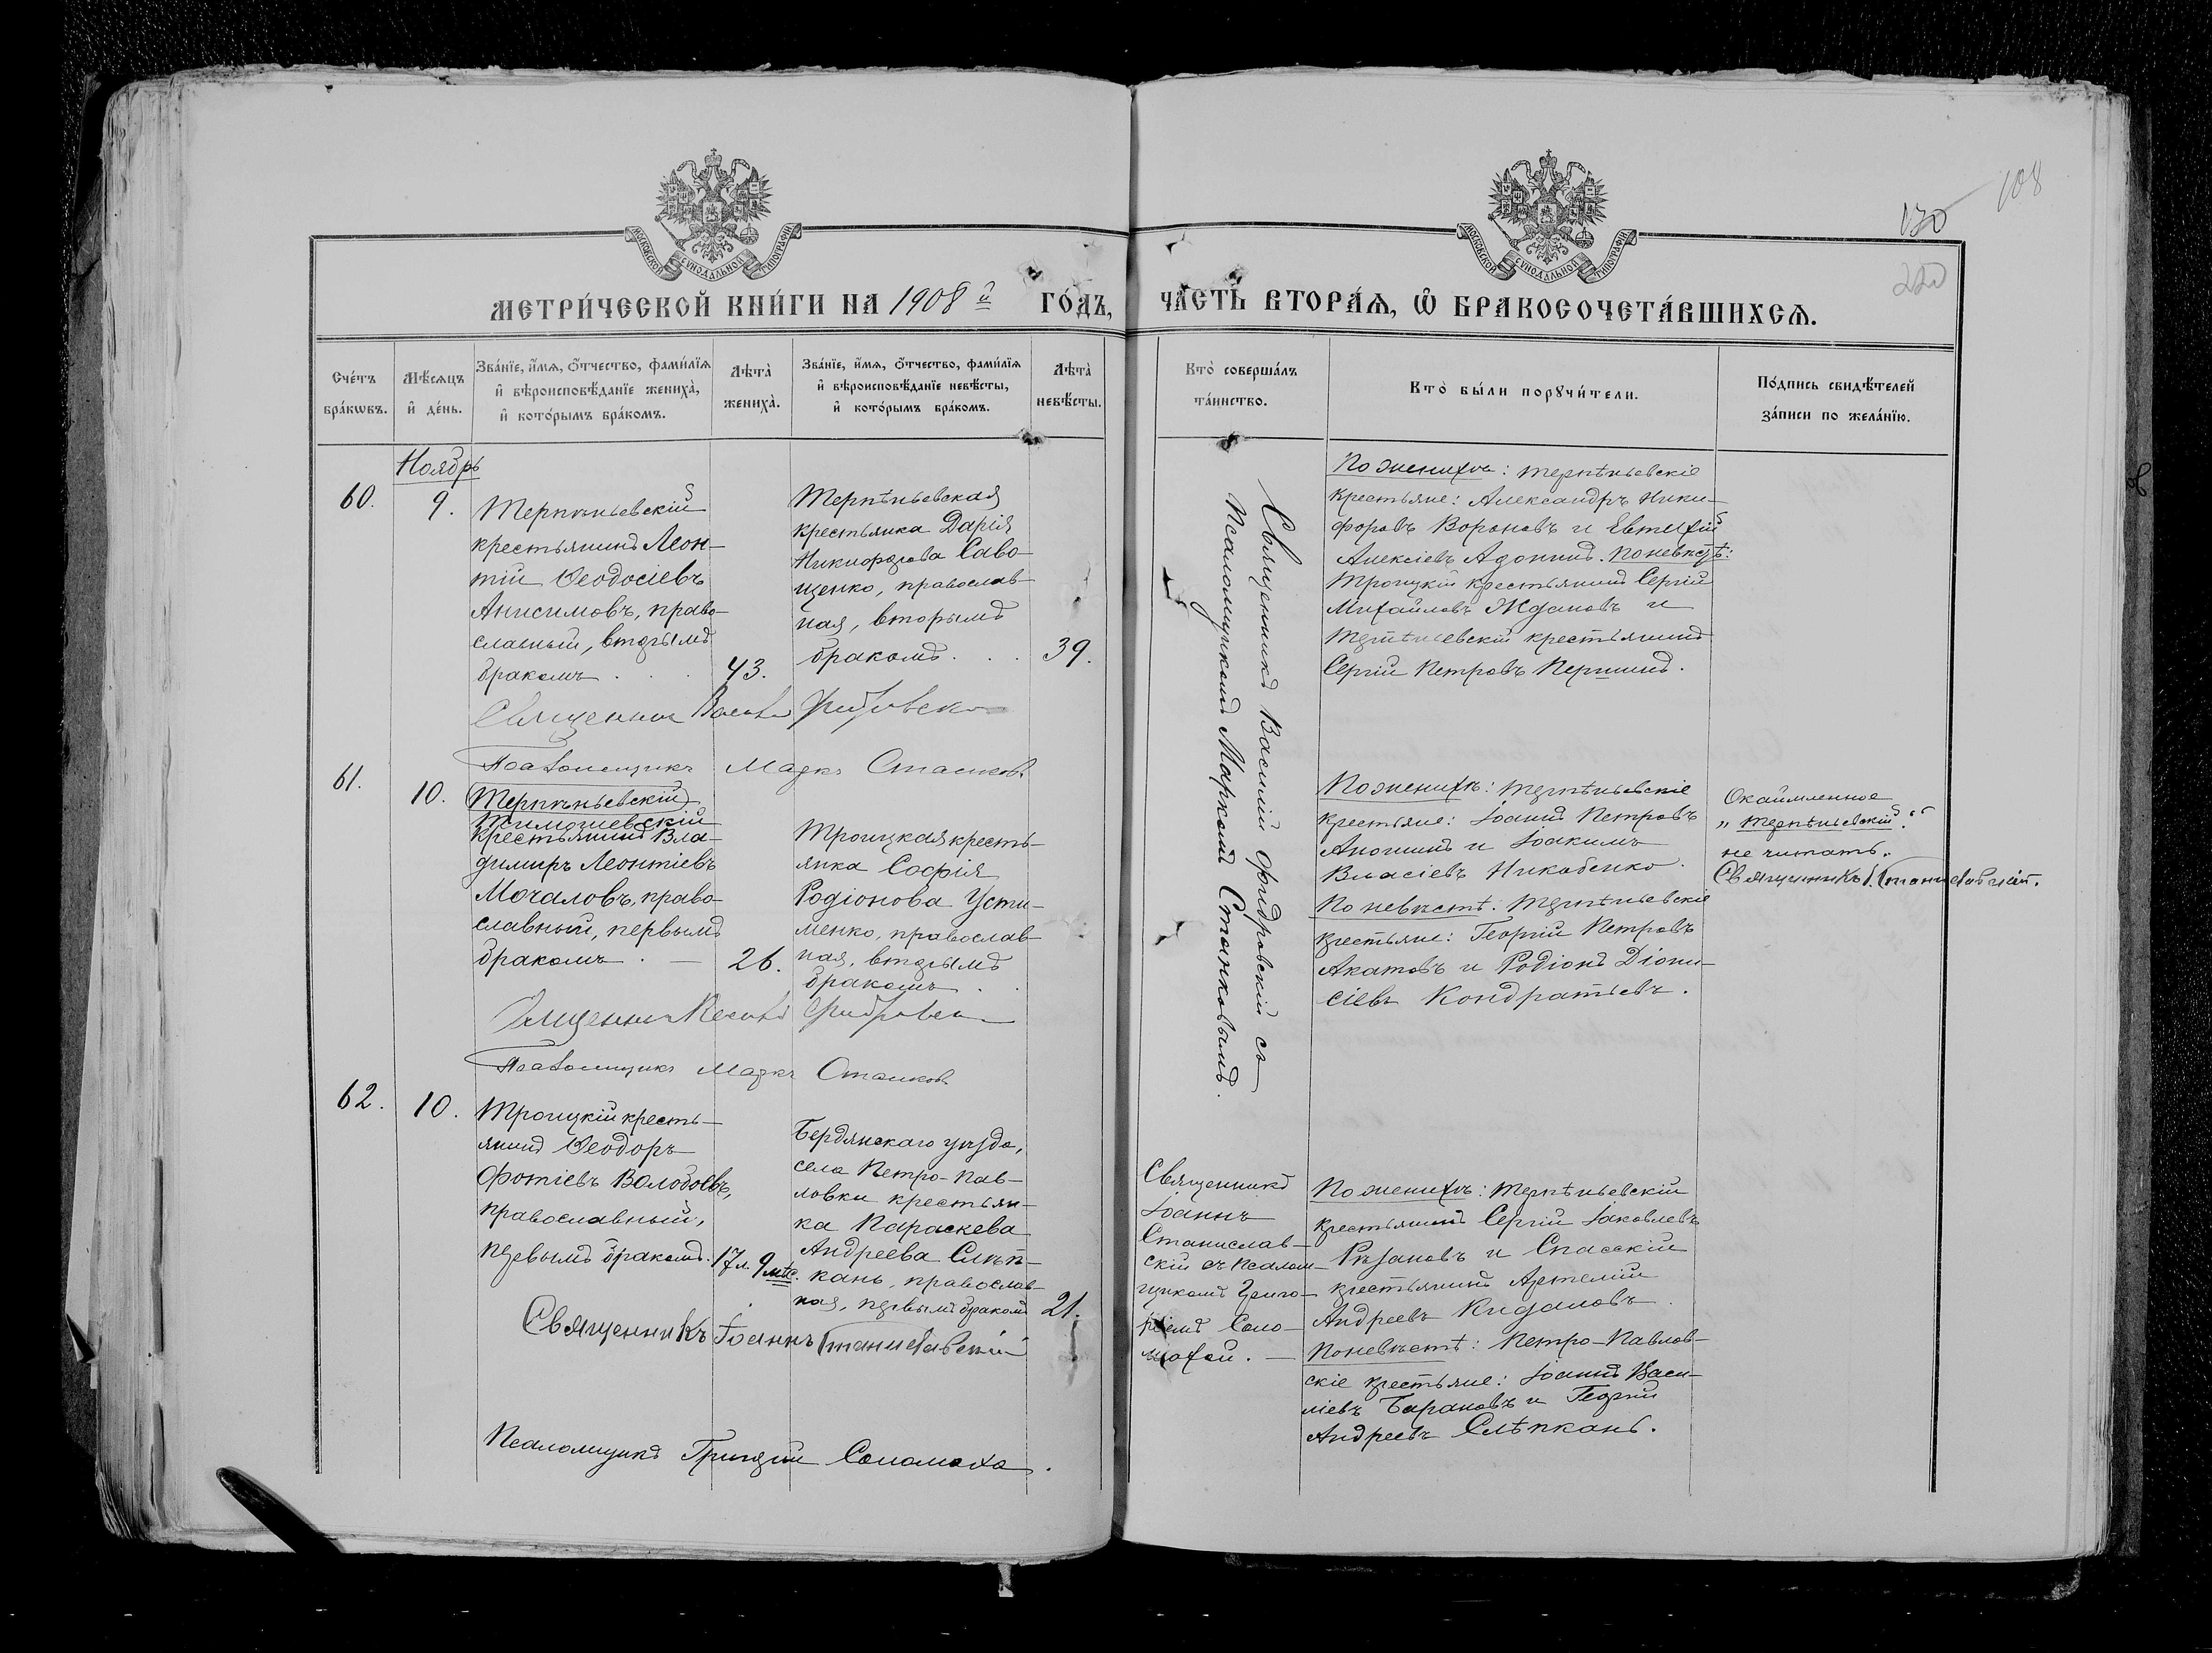 130
108
220
МОСКОВСКОЙ СѴНОДАЛЬНОЙ ТИПОГРАФІИ
МОСКОВСКОЙ СѴНОДАЛЬНОЙ ТИПОГРАФІИ
МЕТРИ́ЧЕСКОЙ КНИ́ГИ НА 1908й ГО́ДЪ,
ЧА́СТЬ ВТОРА́Я, Ѿ БРАКОСОЧЕТА́ВШИХСЯ.
Сче́тъ
бра́кωвъ.
Мѣ́сяцъ
и҆ де́нь.
Зва́нїе, и҆́мя, ѻ҆́тчество, фами́лїя
и҆ вѣроисповѣ́данїе жениха̀,
и҆ кото́рымъ бра́комъ.
Лѣта̀
жениха̀.
Зва́нїе, и҆́мя, ѻ҆́тчество, фами́лїя
и҆ вѣроисповѣ́данїе невѣ́сты,
и҆ кото́рымъ бра́комъ.
Лѣта̀
невѣ́сты.
Кто̀ соверша́лъ
та́инство.
Кто̀ бы́ли порꙋчи́тели.
По́дпись свидѣ́телей
за́писи по жела́нїю.
Ноябрь
60.
9.
Терпѣньевскій
крестьянинъ Леон-
тій Ѳеодосіевъ
Анисимовъ, право-
славный, вторымъ
бракомъ . . .
43.
Терпѣньевская
крестьянка Дарія
Никифорова Саво-
щенко, православ-
ная, вторымъ
бракомъ. . .
39.
Священникъ Василій
Псаломщикъ Маркъ Станковъ
Священникъ Василій Фидровскій съ
Псаломщикомъ Маркомъ Станковымъ.
По женихѣ: Терпѣньевскіе
крестьяне: Александръ Ники-
форовъ Вороновъ и Евтихій
Алексіевъ Адонинъ. По невѣстѣ:
Троицкій крестьянинъ Сергій
Михайловъ Ждановъ и
Терпѣньевскій крестьянинъ
Сергій Петровъ Першинъ.
61.
10.
Терпѣньевскій
Тимошевскій
крестьянинъ Вла-
димиръ Леонтіевъ
Мочаловъ, право-
славный, первымъ
бракомъ . —
26.
Троицкая кресть-
янка Софія
Родіонова Усти-
менко, православ-
ная, вторымъ
бракомъ . .
Священникъ Василій
Псаломщикъ Маркъ Станковъ
По женихѣ: Терпѣньевскіе
крестьяне: Іоаннъ Петровъ
Аношинъ и Іоакимъ
Власіевъ Никобенко.
По невѣстѣ: Терпѣньевскіе
крестьяне: Георгій Петровъ
Акатовъ и Родіонъ Діони-
сіевъ Кондратьевъ.
Окаймленное
„Терпѣньевскій“
не читать.
Священникъ І. Станиславскій.
62.
10.
Троицкій кресть-
янинъ Ѳеодоръ
Фотіевъ Володоевъ,
православный,
первымъ бракомъ.
17 л. 9 мѣс.
Бердянскаго уѣзда,
села Петро-Пав-
ловки крестьян-
ка Параскева
Андреева Слѣп-
кань, православ-
ная, первымъ бракомъ
21.
Священникъ Іоаннъ Станиславскій
Псаломщикъ Григорій Соломаха.
Священникъ
Іоаннъ
Станислав-
скій съ псалом-
щикомъ Григо-
ріемъ Соло-
махой. —
По женихѣ: Терпѣньевскій
крестьянинъ Сергій Іаковлевъ
Рязановъ и Спасскій
крестьянинъ Артемій
Андреевъ Кидаловъ.
По невѣстѣ: Петро-Павлов-
скіе крестьяне: Іоаннъ Васи-
ліевъ Барановъ и Георгій
Андреевъ Слѣпкань.